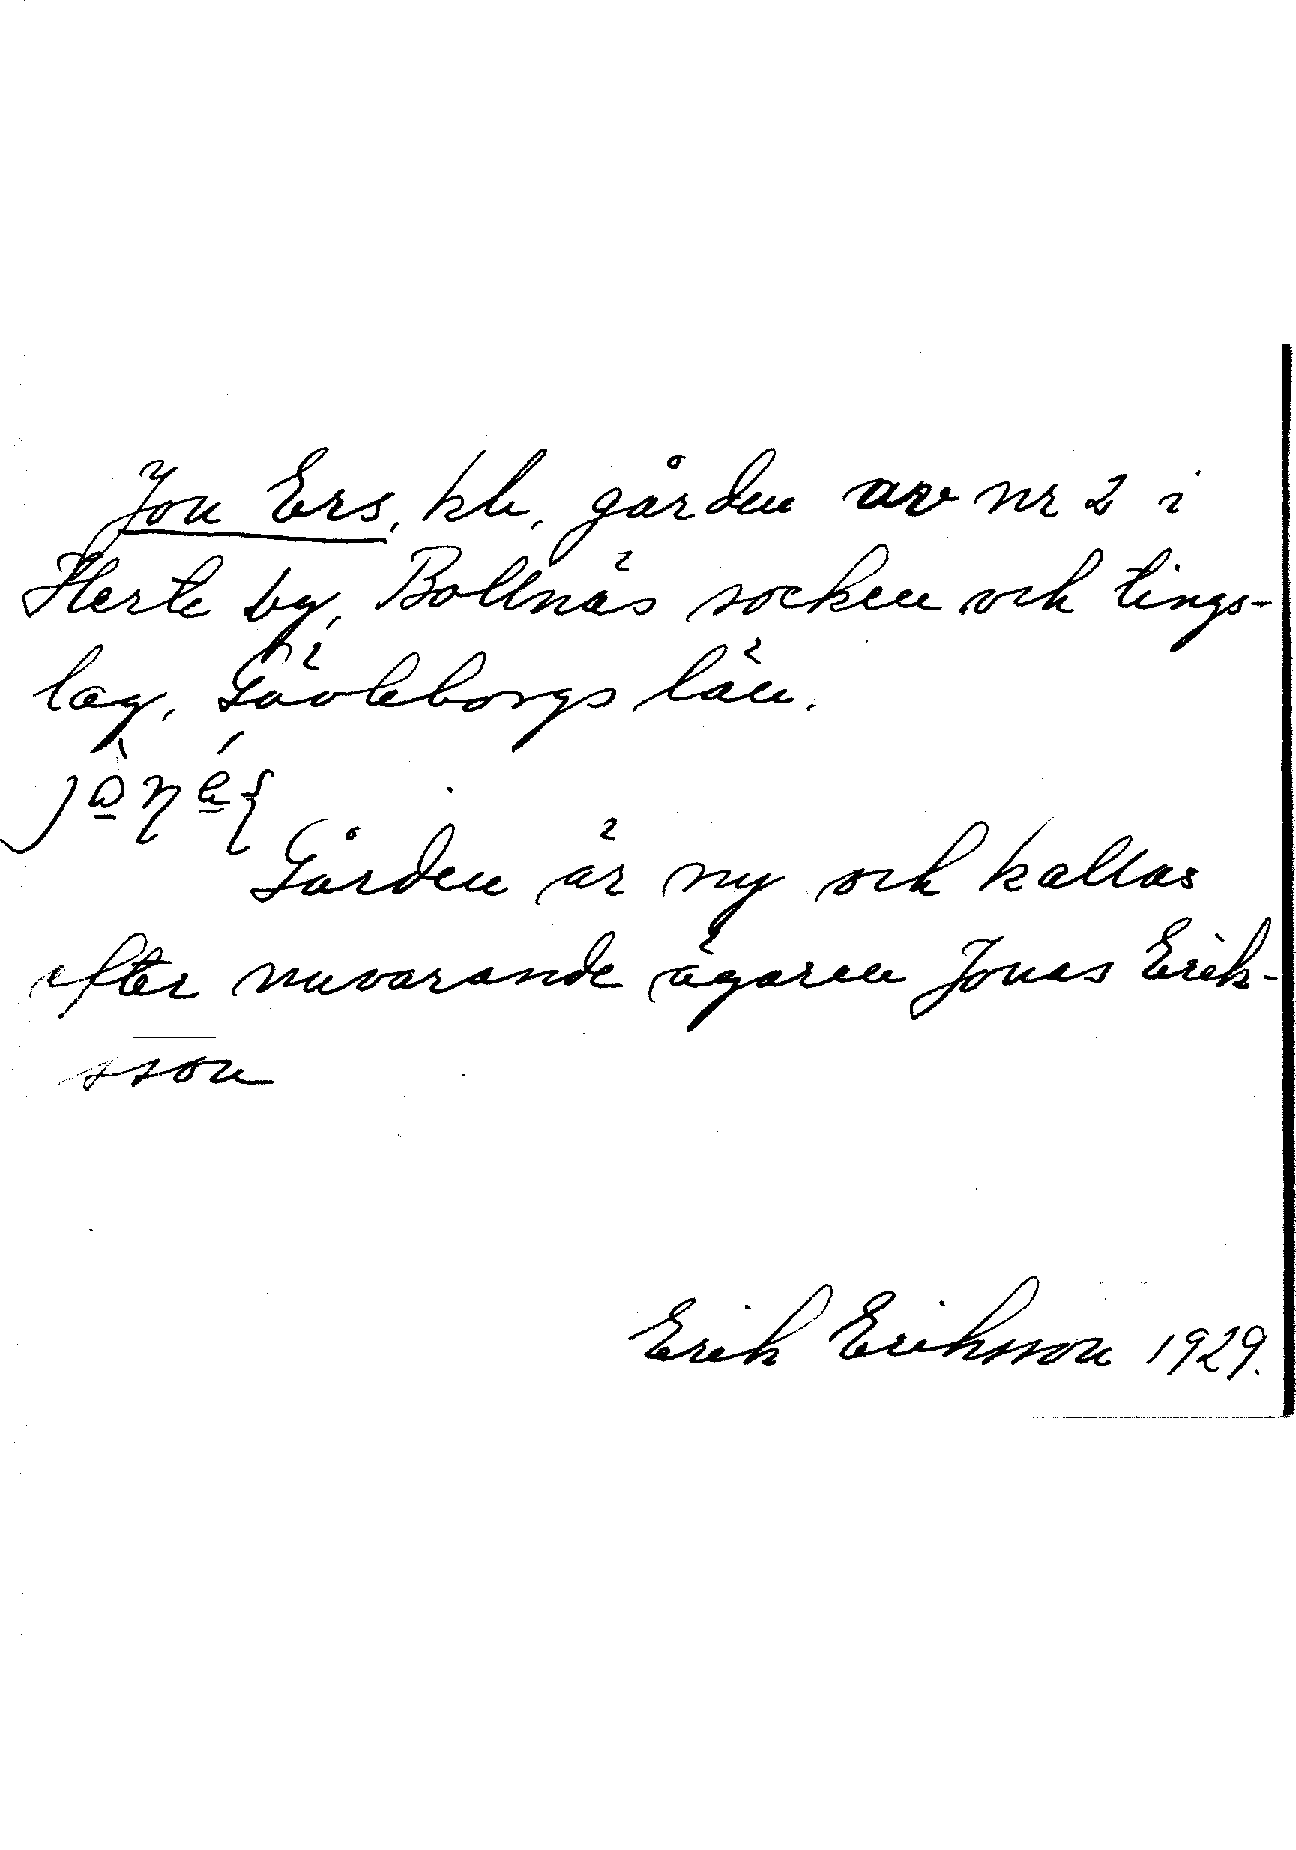 Jon Ers, kl. gården av nr 2 i
Herte by, Bollnäs socken och tings-
lag, Gävleborgs län.
Gården är ny och kallas
efter nuvarande ägaren Jonas Erik-
sson
Erik Eriksson 1929.